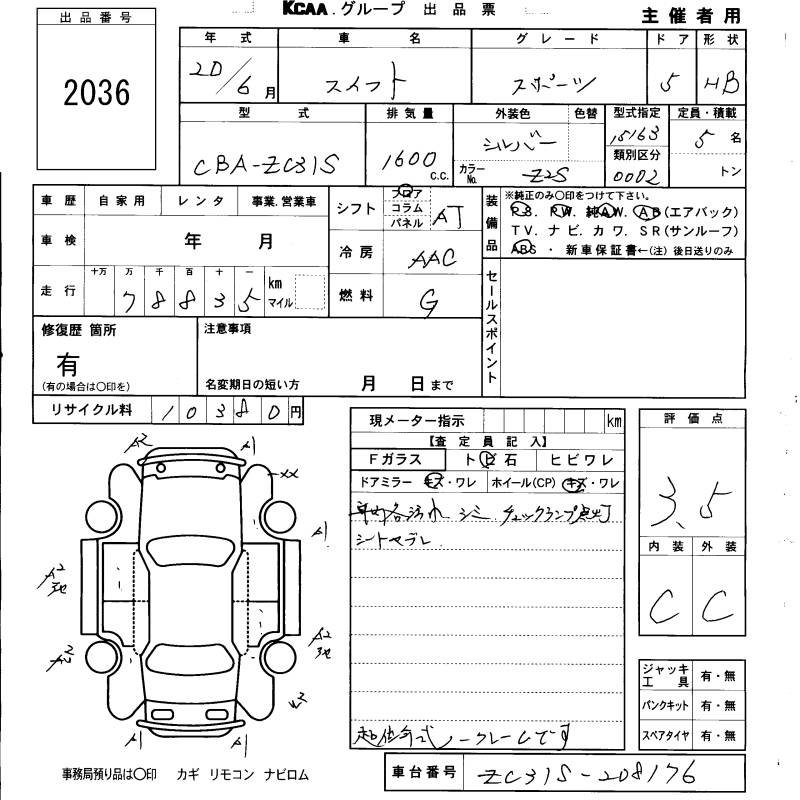 KCAA.グループ 出品票
主催者用
出品番号
2036
年式 車名 グレード ドア 形状
20/6月 スイフト スポーツ 5 HB
型式 排気量 外装色 色替 型式指定 定員・積載
CBA-ZC31S 1600c.c. シルバー 15163 5名
カラーNo. Z2S 類別区分 0002 トン
車歴 自家用 レンタ 事業.営業車
車検 年 月
走行 十万 万 千 百 十 一
7 8 8 3 5 km マイル
シフト フロア コラム パネル AT
冷房 AAC
燃料 G
装備品 ※純正のみ〇印をつけて下さい。
P.S. P.W. 純A.W. A.B(エアバック)
T.V. ナビ. カワ. S.R(サンルーフ)
ABS ・ 新車保証書←(注) 後日送りのみ
セールスポイント
修復歴 箇所
有
(有の場合は〇印を)
注意事項
名変期日の短い方 月 日まで
リサイクル料 1 0 3 8 0 円
現メーター指示 km
【査定員記入】
Fガラス トビ石 ヒビワレ
ドアミラー キズ・ワレ ホイール(CP) キズ・ワレ
車内各汚れ シミ チェックランプ点灯
シートヤブレ
超低年式ノークレームです
評価点
3.5
内装 外装
C C
ジャッキ工具 有・無
パンクキット 有・無
スペアタイヤ 有・無
A2 A1
XX
A1
A2
A2
A2
事務局預り品は〇印 カギ リモコン ナビロム
車台番号 ZC31S-208176